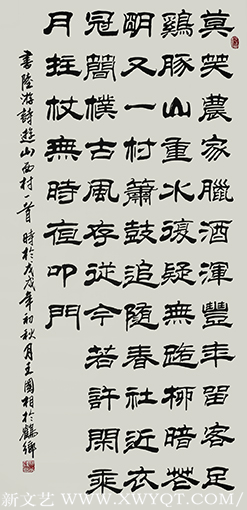 莫笑農家臘酒渾豐年留客足
鷄豚山重水復疑無路柳暗花
明又一村簫鼓追隨春社近衣
冠簡樸古風存從今若許閑乘
月拄杖無時夜叩門
書陸游詩遊山西村一首 時於戊戌年初秋月王國相於鶴鄉
新文艺 WWW.XWYQT.COM/